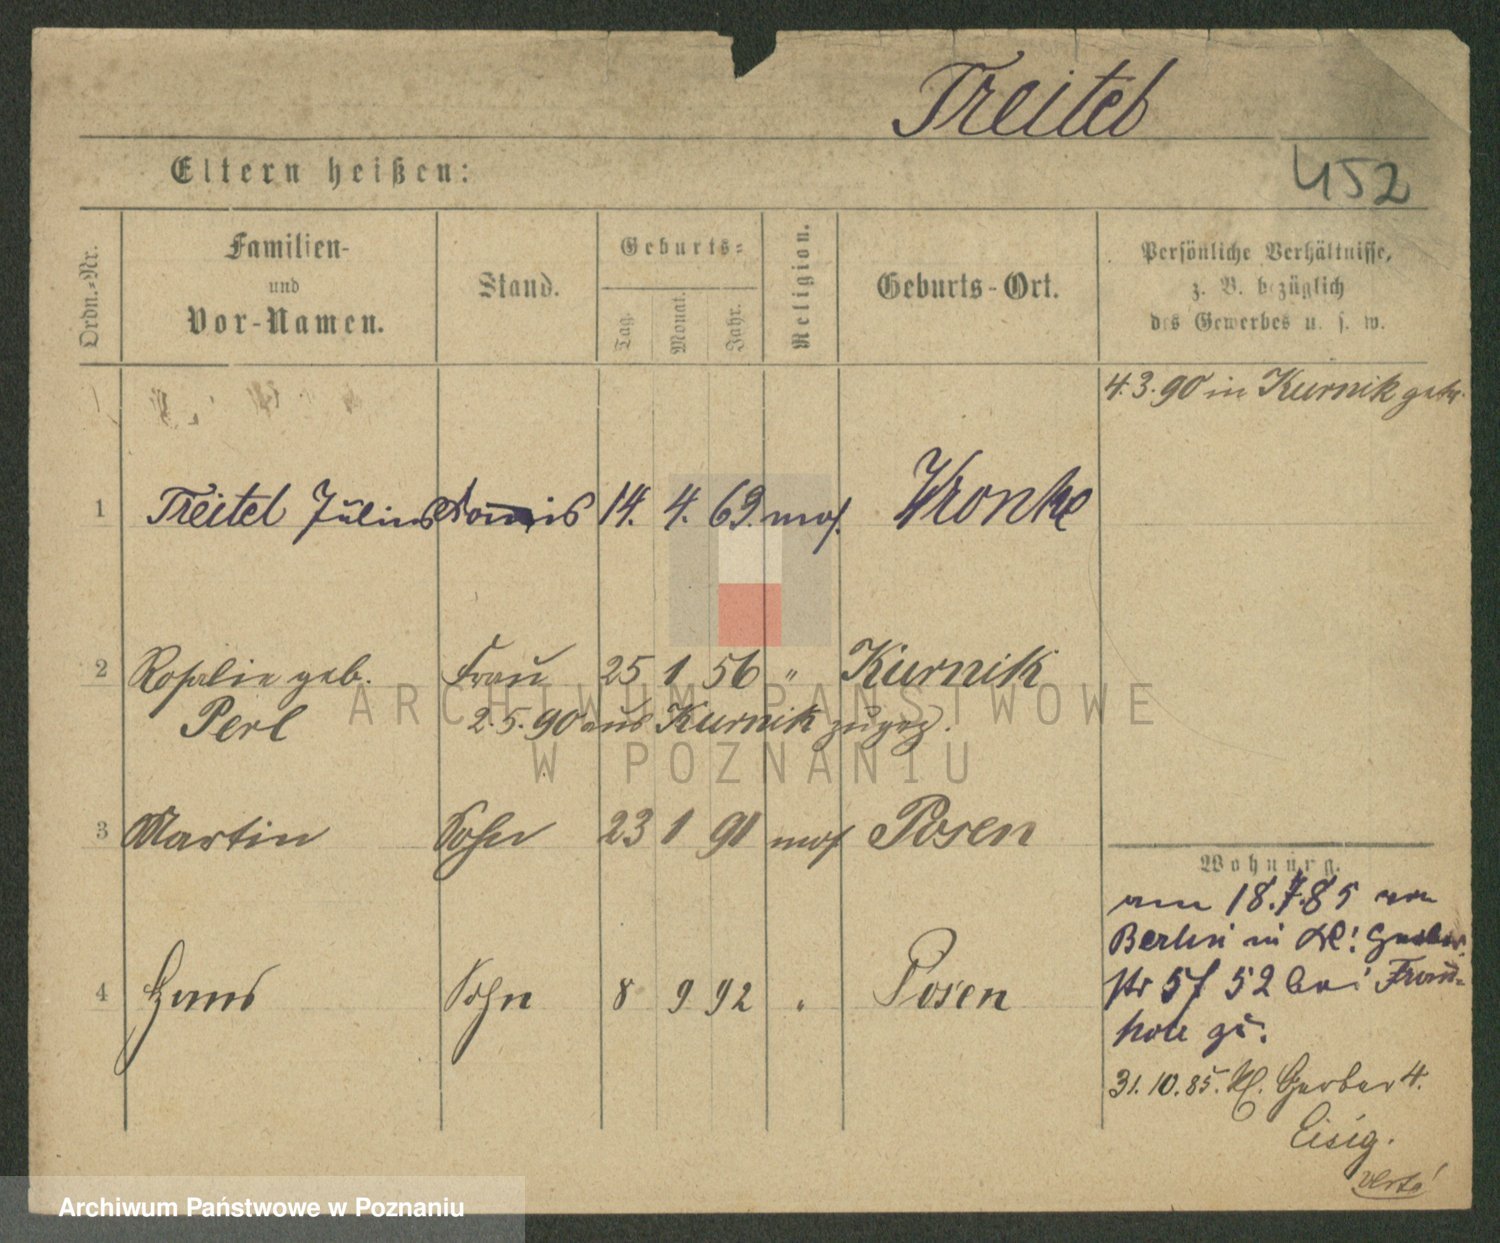 Treitel
Eltern heißen:
452
Ordn.-Nr.
Familien-
und
Vor-Namen.
Stand.
Geburts-
Tag.
Monat.
Jahr.
Religion.
Geburts-Ort.
Persönliche Verhältnisse,
z. B. bezüglich
des Gewerbes u. s. w.
4.3.90 in Kurnik geh.
1 Treitel Julius 14. 4. 69. mos. Wronke
2 Rosalie geb. Frau 25 1 56 " Kurnik
Perl 2.5.90 aus Kurnik zugez.
3 Martin Sohn 23 1 91 mos Posen
4 Hans Sohn 8 9 92 " Posen
Wohnung.
am 18.7.85 von
Berlin in Kl. Gerber
str 5/ 52 bei
zu.
31.10.85. Kl. Gerber 4.
Eisig.
ARCHIWUM PAŃSTWOWE
W POZNANIU
Archiwum Państwowe w Poznaniu